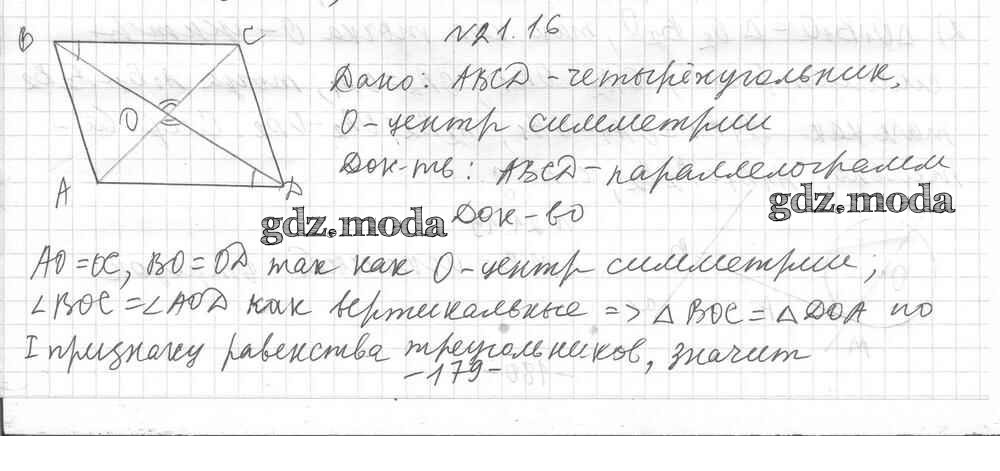 №21.16
B C
Дано: ABCD - четырёхугольник,
O
O - центр симметрии
Док-ть: ABCD - параллелограмм
A D
gdz.moda gdz.moda
Док-во
AO = OC, BO = OD так как O - центр симметрии;
∠BOC = ∠AOD как вертикальные => △BOC = △DOA по
I признаку равенства треугольников, значит
-179-